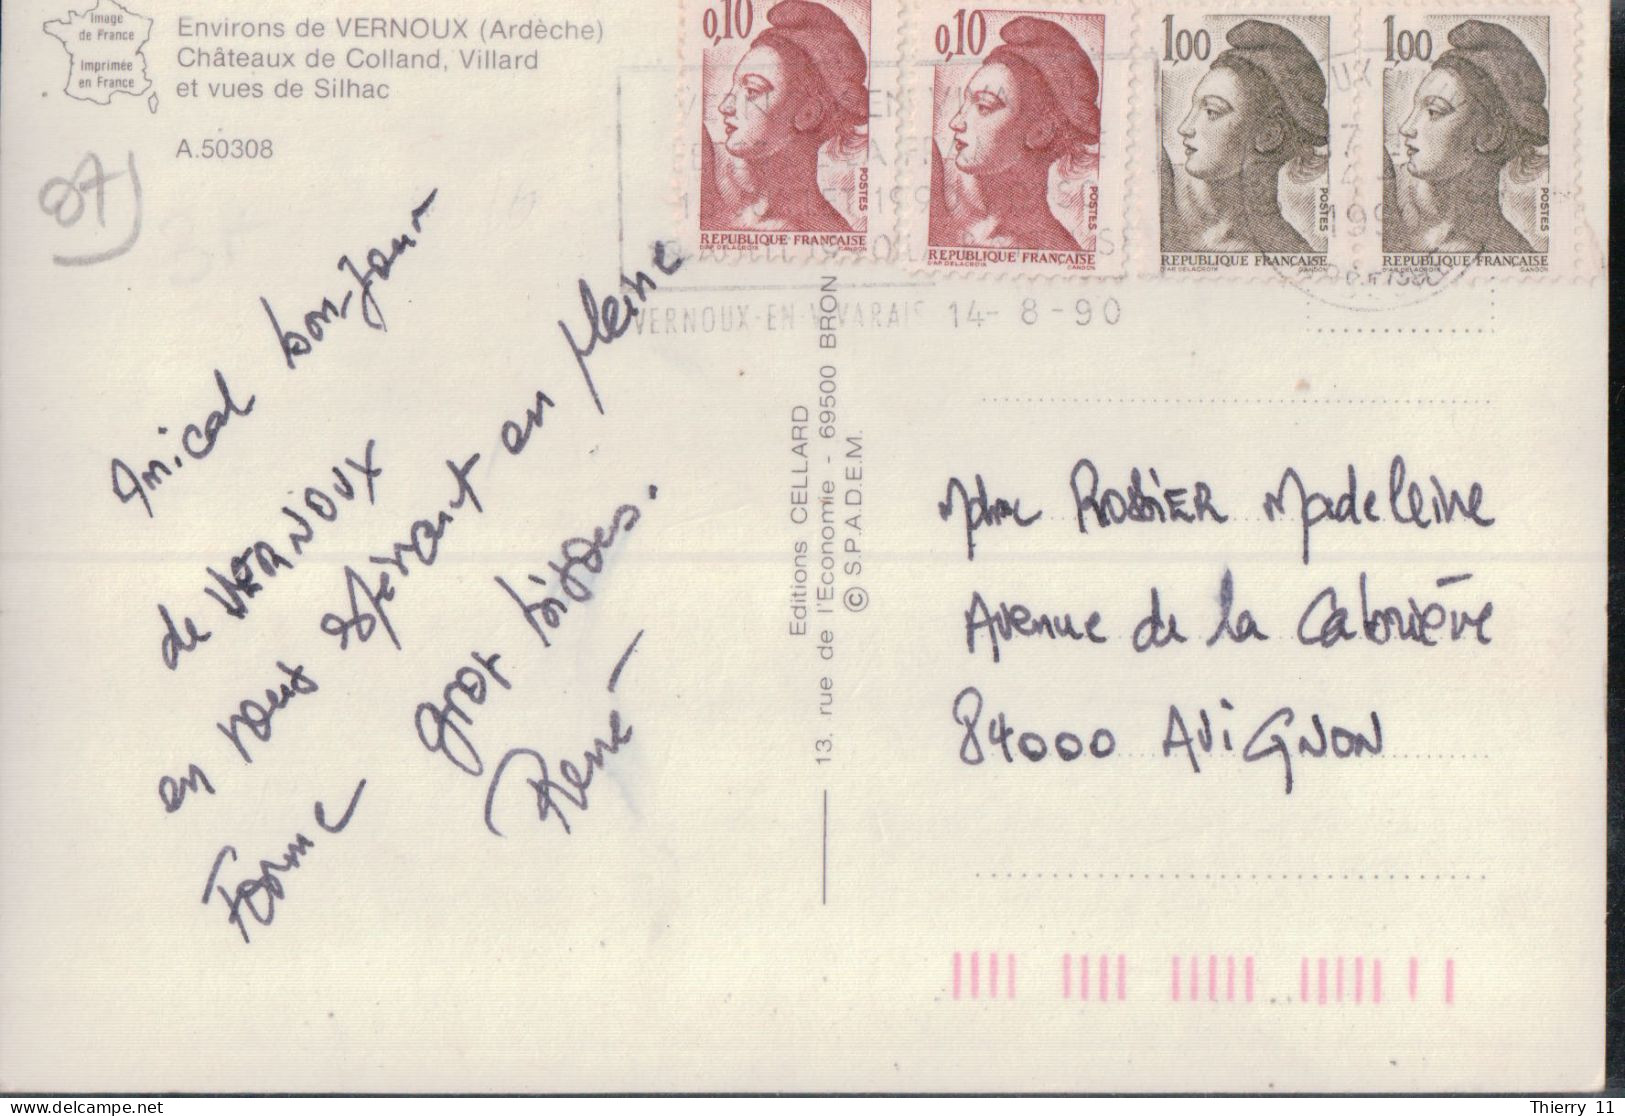 Image
de France
Imprimée
en France
Environs de VERNOUX (Ardèche)
Châteaux de Colland, Villard
et vues de Silhac
A.50308
87
0,10
POSTES
REPUBLIQUE FRANÇAISE
D'AP. DELACROIX GANDON
0,10
POSTES
REPUBLIQUE FRANÇAISE
D'AP. DELACROIX GANDON
1,00
POSTES
REPUBLIQUE FRANÇAISE
D'AP. DELACROIX GANDON
1,00
POSTES
REPUBLIQUE FRANÇAISE
D'AP. DELACROIX GANDON
VERNOUX-EN-VIVARAIS 14-8-90
Amical bon-Jour
de VERNOUX
en vous espérant en pleine
Forme gros bisous.
René
Editions CELLARD
13, rue de l'Economie - 69500 BRON
© S.P.A.D.E.M.
Mdme ROSSIER Madeleine
Avenue de la Cabrière
84000 AViGNON
Thierry 11